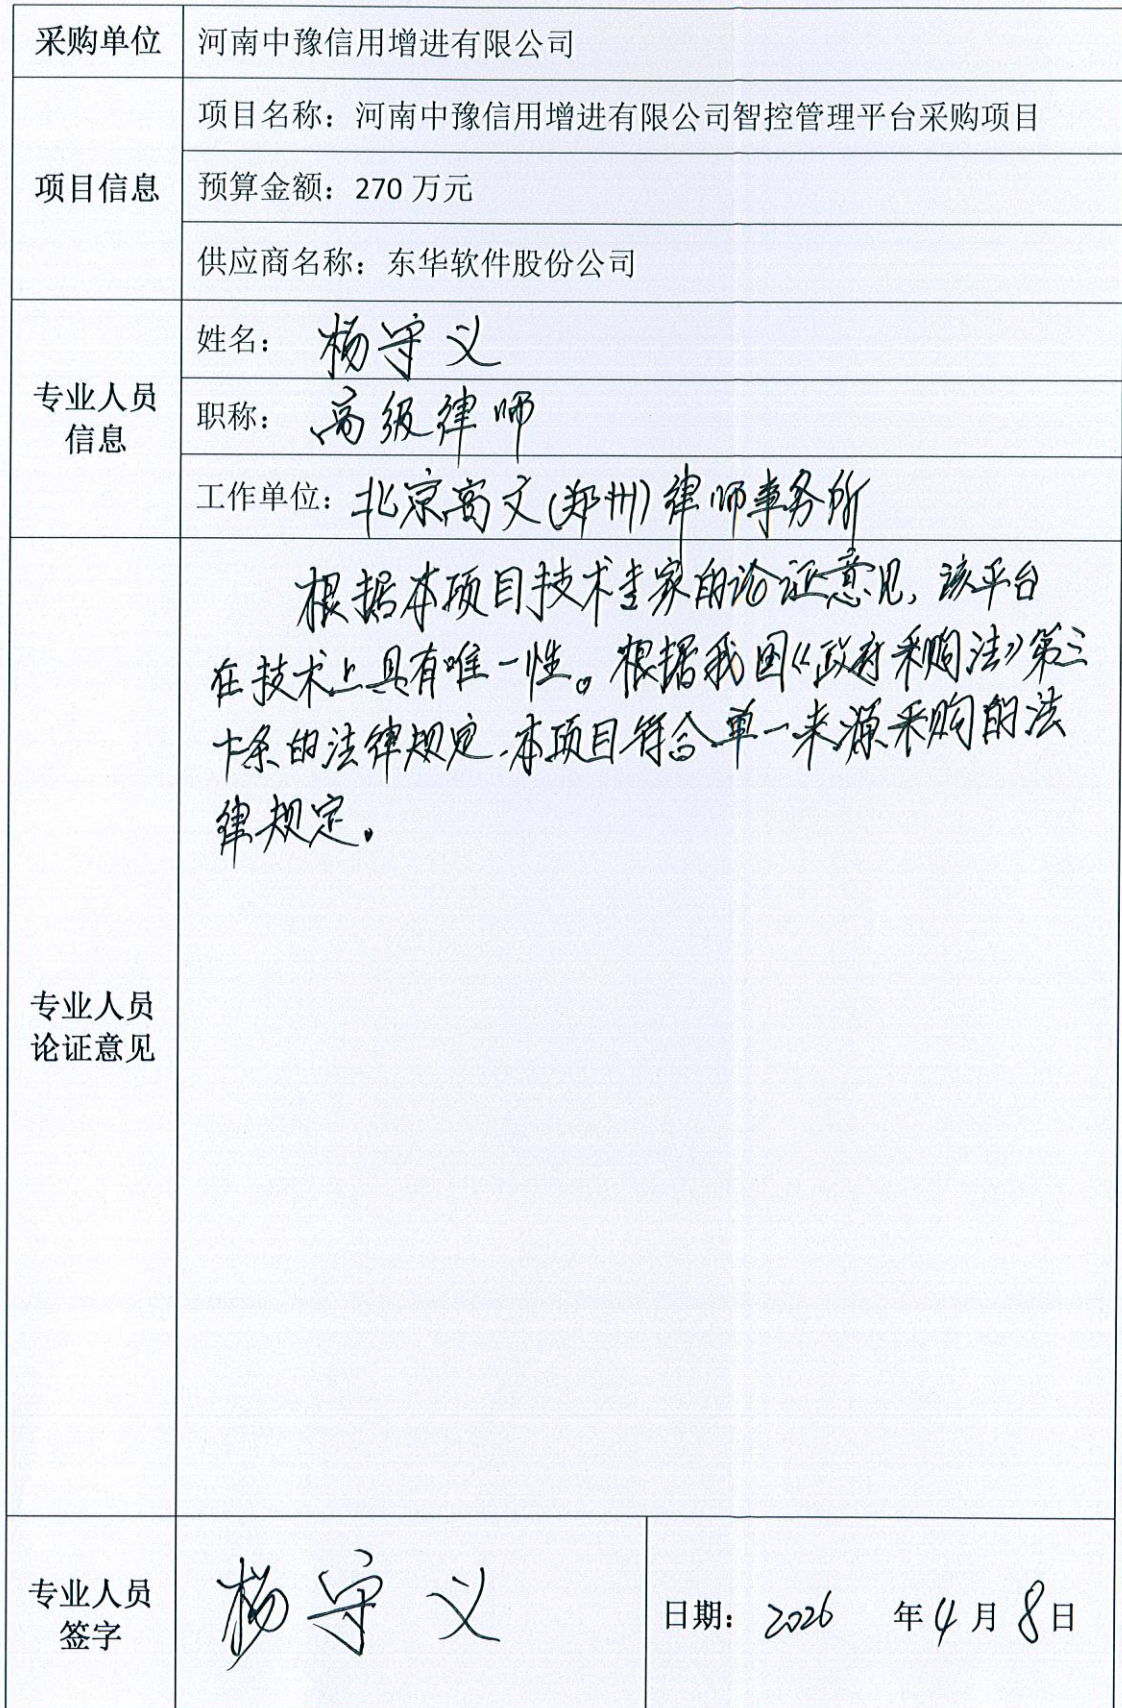 采购单位 河南中豫信用增进有限公司
项目信息
项目名称：河南中豫信用增进有限公司智控管理平台采购项目
预算金额：270 万元
供应商名称：东华软件股份公司
专业人员
信息
姓名：杨守义
职称：高级律师
工作单位：北京高文(郑州)律师事务所
专业人员
论证意见
根据本项目技术专家的论证意见，该平台
在技术上具有唯一性。根据我国《政府采购法》第三
十条的法律规定，本项目符合单一来源采购的法
律规定。
专业人员
签字
杨守义
日期：2026 年 4 月 8 日